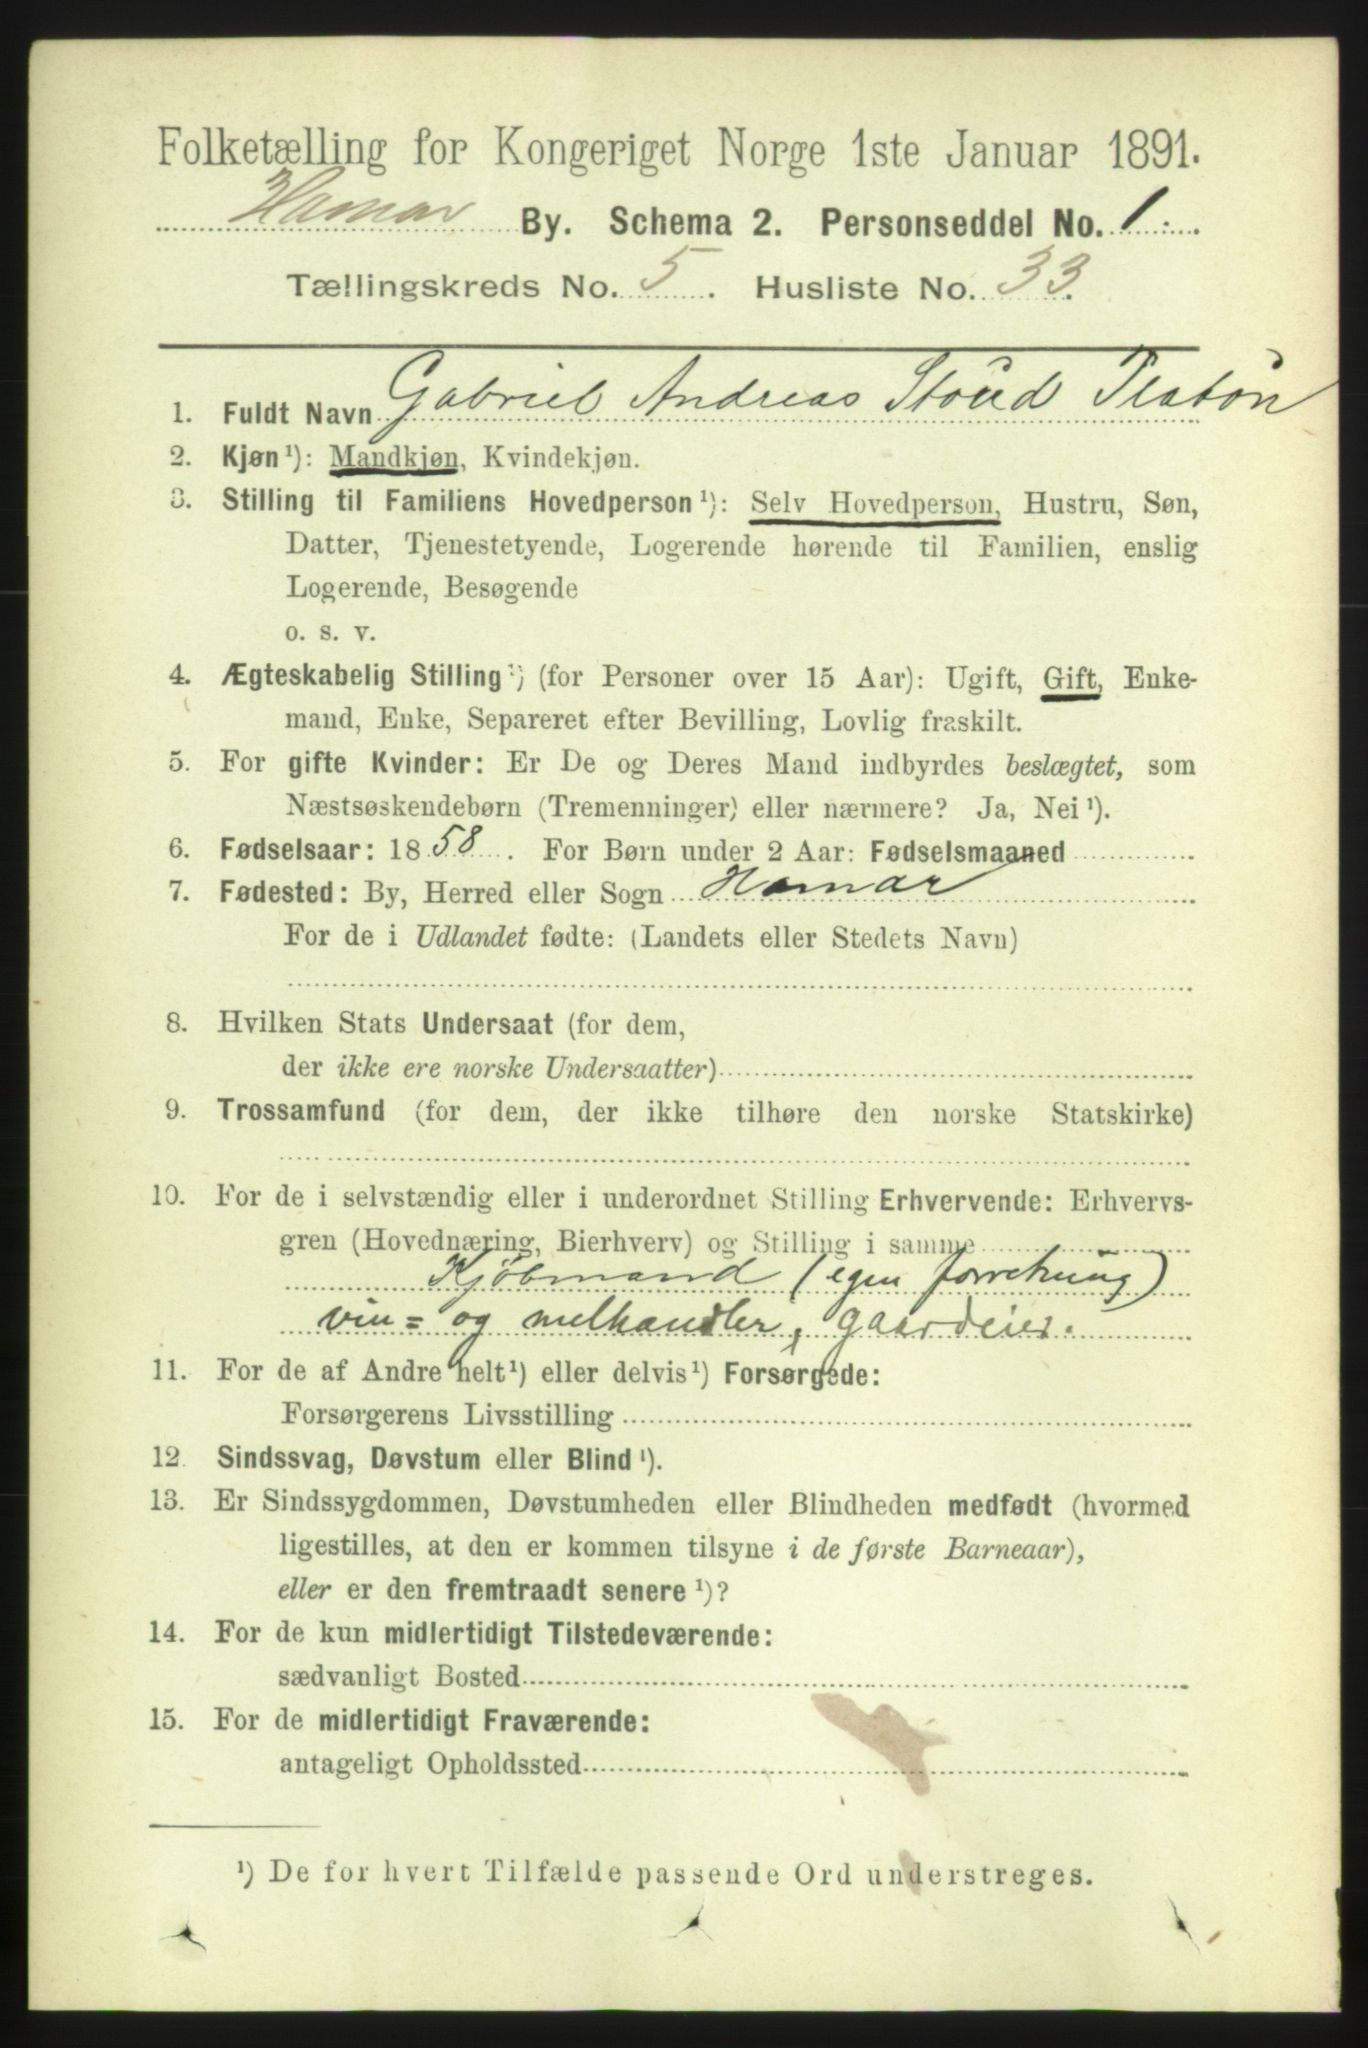 Folketælling for Kongeriget Norge 1ste Januar 1891.
Hamar By. Schema 2. Personseddel No. 1.
Tællingskreds No. 5. Husliste No. 33.
1. Fuldt Navn Gabriel Andreas Stoud Platou
2. Kjøn¹): Mandkjøn, Kvindekjøn.
3. Stilling til Familiens Hovedperson¹): Selv Hovedperson, Hustru, Søn,
Datter, Tjenestetyende, Logerende hørende til Familien, enslig
Logerende, Besøgende
o. s. v.
4. Ægteskabelig Stilling¹) (for Personer over 15 Aar): Ugift, Gift, Enke-
mand, Enke, Separeret efter Bevilling, Lovlig fraskilt.
5. For gifte Kvinder: Er De og Deres Mand indbyrdes beslægtet, som
Næstsøskendebørn (Tremenninger) eller nærmere? Ja, Nei¹).
6. Fødselsaar: 1858. For Børn under 2 Aar: Fødselsmaaned
7. Fødested: By, Herred eller Sogn Hamar
For de i Udlandet fødte: (Landets eller Stedets Navn)
8. Hvilken Stats Undersaat (for dem,
der ikke ere norske Undersaatter)
9. Trossamfund (for dem, der ikke tilhøre den norske Statskirke)
10. For de i selvstændig eller i underordnet Stilling Erhvervende: Erhvervs-
gren (Hovednæring, Bierhverv) og Stilling i samme
Kjøbmand (egen forretning)
vin= og melhandler, gaardeier.
11. For de af Andre helt¹) eller delvis¹) Forsørgede:
Forsørgerens Livsstilling
12. Sindssvag, Døvstum eller Blind¹).
13. Er Sindssygdommen, Døvstumheden eller Blindheden medfødt (hvormed
ligestilles, at den er kommen tilsyne i de første Barneaar),
eller er den fremtraadt senere¹)?
14. For de kun midlertidigt Tilstedeværende:
sædvanligt Bosted
15. For de midlertidigt Fraværende:
antageligt Opholdssted
¹) De for hvert Tilfælde passende Ord understreges.